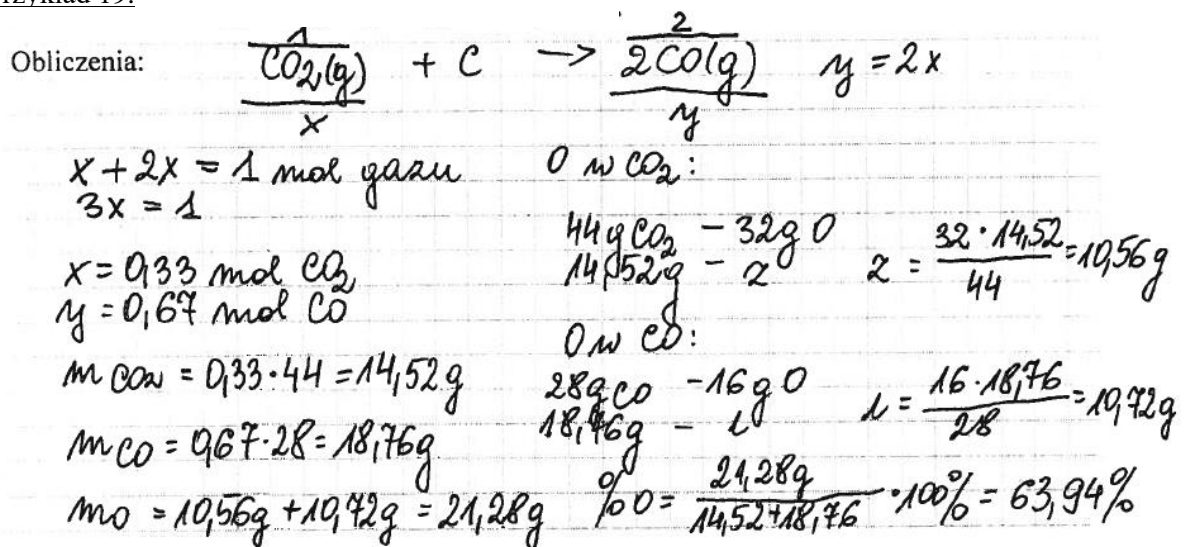 Obliczenia: 1 CO2(g) + C → 2 2CO(g) y = 2x
x y
x + 2x = 1 mol gazu
3x = 1
x = 0,33 mol CO2
y = 0,67 mol CO
mCO2 = 0,33·44 = 14,52g
mCO = 0,67·28 = 18,76g
mO = 10,56g + 10,72g = 21,28g
O w CO2:
44g CO2 – 32g O
14,52g – z z = 32·14,52 / 44 = 10,56g
O w CO:
28g CO – 16g O
18,76g – l l = 16·18,76 / 28 = 10,72g
%O = 21,28g / 14,52+18,76 · 100% = 63,94%